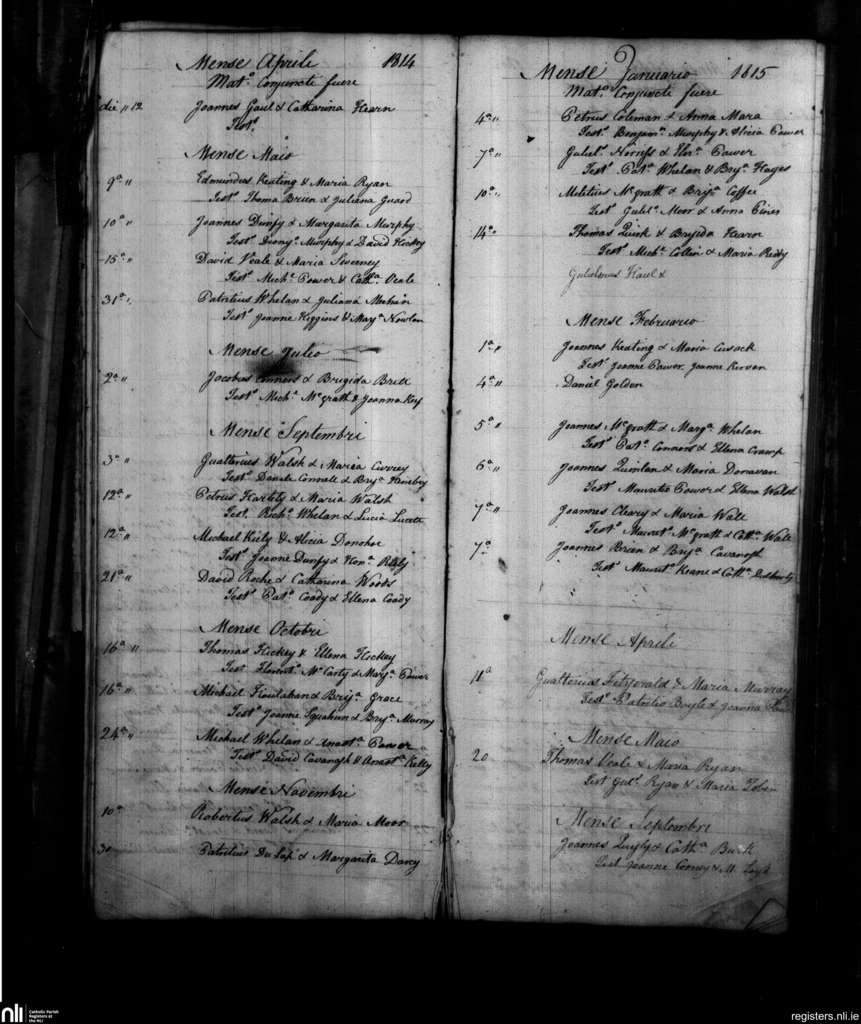 Mense Aprili 1814
Mat.o Conjuncti fuere
die " 12 Joannes Gaul & Catharina Hearn
Test.s
Mense Maio
9.a " Edmundus Keating & Maria Ryan
Test.s Thoma Breen & Juliana Guard
10.a " Joannes Dunfy & Margarita Murphy
Test.s Diony.o Murphy & David Hickey
15.a " David Veale & Maria Sweeney
Test.s Mich.e Power & Cath.a Veale
31.a " Patritius Whelan & Juliana Meehan
Test.s Joanne Higgins & Mary.a Nowlan
Mense Julio
2.a " Jacobus Connors & Brigida Brett
Test.s Mich.e McGrath & Joanna Key
Mense Septembri
3.a " Gualterius Walsh & Maria Currey
Test.s Daniele Connell & Bry.a
12.a " Petrus Hartety & Maria Walsh
Test. Rich.o Whelan & Lucia
12.a " Michael Kiely & Alicia Donohoe
Test.s Joanne Dunfy & Hon.a Reily
21.a " David Roche & Catharina Woods
Test.s Pat.o Coady & Ellena Coady
Mense Octobri
16.a " Thomas Hickey & Ellena Hickey
Test. Florent.o McCarty & Mary.a Power
16.a " Michael Houlahan & Brij.a Grace
Test.s Joanne & Bry.a Murray
24.a " Michael Whelan & Anast.a Power
Test.s David Cavanagh & Anast.a Kelly
Mense Novembri
10.a Robertus Walsh & Maria Moor
30 Patritius & Margarita Darcy
Mense Januario 1815
Mat.o Conjuncti fuere
4.a " Petrus Coleman & Anna Mara
Test.s Benjam.n Murphy & Alicia Power
7.a " Guliel.s & Eln.a Power
Test. Pat.o Whelan & Bry.a Hayes
10.a " Melitius McGrath & Brij.a Coffee
Test. Guli.o Moor & Anna
14.a " Thomas Quirk & Brijida Hearn
Test.s Mich.e & Maria Reidy
Gulielmus &
Mense Februario
1.a " Joannes Keating & Maria Cusack
Test.s Joanne Power, Joanne Kirvan
4.a " Daniel Golden
5.a " Joannes McGrath & Marg.a Whelan
Test.s Pat.o Connors & Ellena
6.a " Joannes Quinlan & Maria Donavan
Test.s Mauritio Power & Ellena Walsh
7.a " Joannes Cleary & Maria Wall
Test.s Maurit.o McGrath & Cath.a Wall
7.a Joannes Breen & Brij.a Cavanagh
Test.s Maurit.o Keane & Cath.a
Mense Aprili
11.a Gualterius Fitzgerald & Maria Murray
Test.s Patritio Boyle & Joanna
Mense Maio
20 Thomas Veale & Maria Ryan
Test Gul.o Ryan & Maria Tobin
Mense Septembri
Joannes & Cath.a
Test Joanne & M.
nli
Catholic Parish
Registers at
the NLI
registers.nli.ie